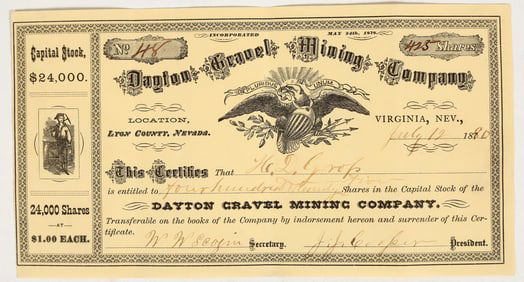 INCORPORATED MAY 24th, 1879.
No 48
425 Shares
Dayton Gravel Mining Company
Capital Stock,
$24,000.
E PLURIBUS UNUM
LOCATION,
LYON COUNTY, NEVADA.
VIRGINIA, NEV.,
July 12 1880
This Certifies That
is entitled to four hundred & twenty five Shares in the Capital Stock of the
DAYTON GRAVEL MINING COMPANY.
Transferable on the books of the Company by indorsement hereon and surrender of this Cer-
tificate.
24,000 Shares
AT
$1.00 EACH.
Secretary. President.